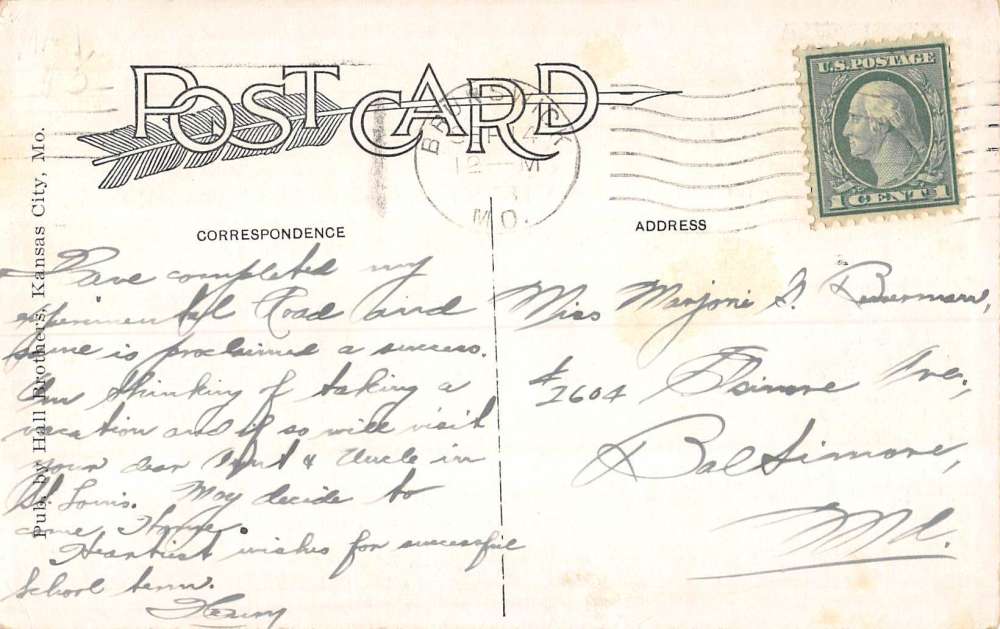 POST CARD
BRUNSWICK
12 — M
MO.
U.S. POSTAGE
1 CENT 1
Pub. by Hall Brothers, Kansas City, Mo.
CORRESPONDENCE
Have completed my
experimental Road and
same is proclaimed a success.
Am thinking of taking a
vacation and if so will visit
your dear Aunt & Uncle in
St. Louis. May decide to
come Home.
Heartiest wishes for successful
School term.
Henry
ADDRESS
Miss Marjorie
# 2604 Ave,
Baltimore,
Md.